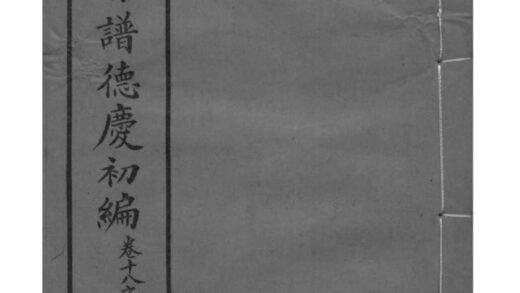 譜德慶初編
卷十八